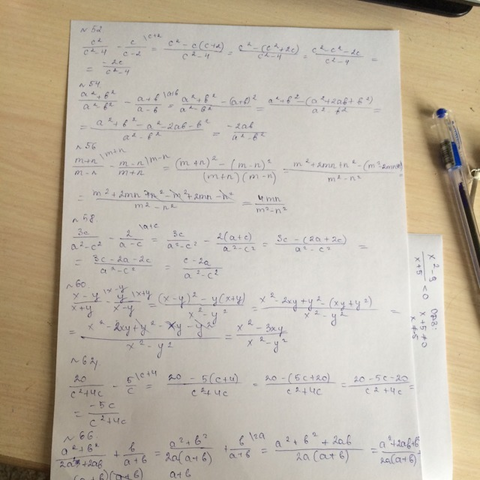 №52
c²/(c²-4) - c/(c-2) \c+2 = (c²-c(c+2))/(c²-4) = (c²-(c²+2c))/(c²-4) = (c²-c²-2c)/(c²-4) =
= -2c/(c²-4)
№54
(a²+b²)/(a²-b²) - (a+b)/(a-b) \a+b = (a²+b²-(a+b)²)/(a²-b²) = (a²+b²-(a²+2ab+b²))/(a²-b²) =
= (a²+b²-a²-2ab-b²)/(a²-b²) = -2ab/(a²-b²)
№56
(m+n)/(m-n) \m+n - (m-n)/(m+n) \m-n = ((m+n)²-(m-n)²)/((m+n)(m-n)) = (m²+2mn+n²-(m²-2mn+n²))/(m²-n²)
= (m²+2mn+n²-m²+2mn-n²)/(m²-n²) = 4mn/(m²-n²)
№58
3c/(a²-c²) - 2/(a-c) \a+c = 3c/(a²-c²) - 2(a+c)/(a²-c²) = (3c-(2a+2c))/(a²-c²) =
= (3c-2a-2c)/(a²-c²) = (c-2a)/(a²-c²)
№60
(x-y)/(x+y) \x-y - y/(x-y) \x+y = ((x-y)²-y(x+y))/(x²-y²) = (x²-2xy+y²-(xy+y²))/(x²-y²) =
= (x²-2xy+y²-xy-y²)/(x²-y²) = (x²-3xy)/(x²-y²)
№62
20/(c²+4c) - 5/c \c+4 = (20-5(c+4))/(c²+4c) = (20-(5c+20))/(c²+4c) = (20-5c-20)/(c²+4c) =
= -5c/(c²+4c)
№66
(a²+b²)/(2a²+2ab) + b/(a+b) = (a²+b²)/(2a(a+b)) + b/(a+b) \2a = (a²+b²+2ab)/(2a(a+b)) = (a²+2ab+b²)/(2a(a+b))
(a+b)(a+b) a+b
(x²-9)/(x+5) < 0
ОДЗ:
x+5≠0
x≠-5